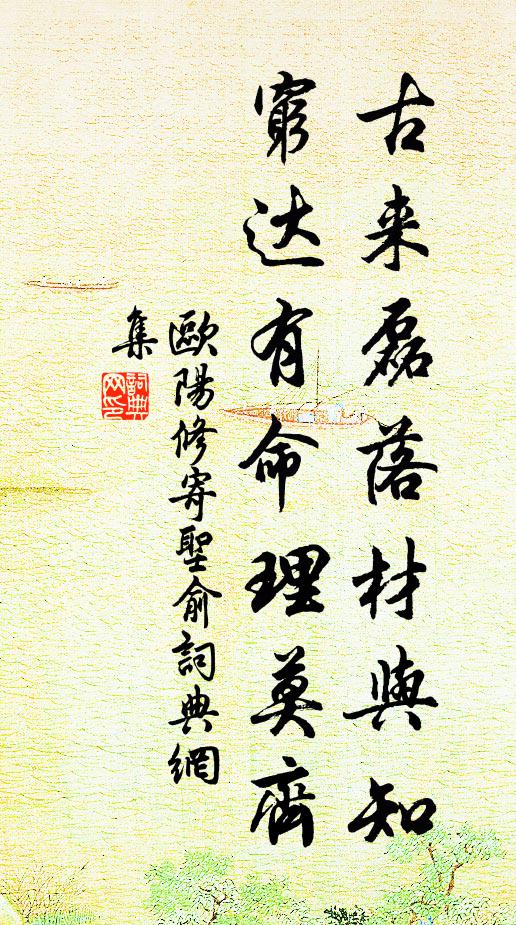 古来磊落材與知
窮达有命理莫齊
歐陽修寄聖俞詞典網
集
詞典網印